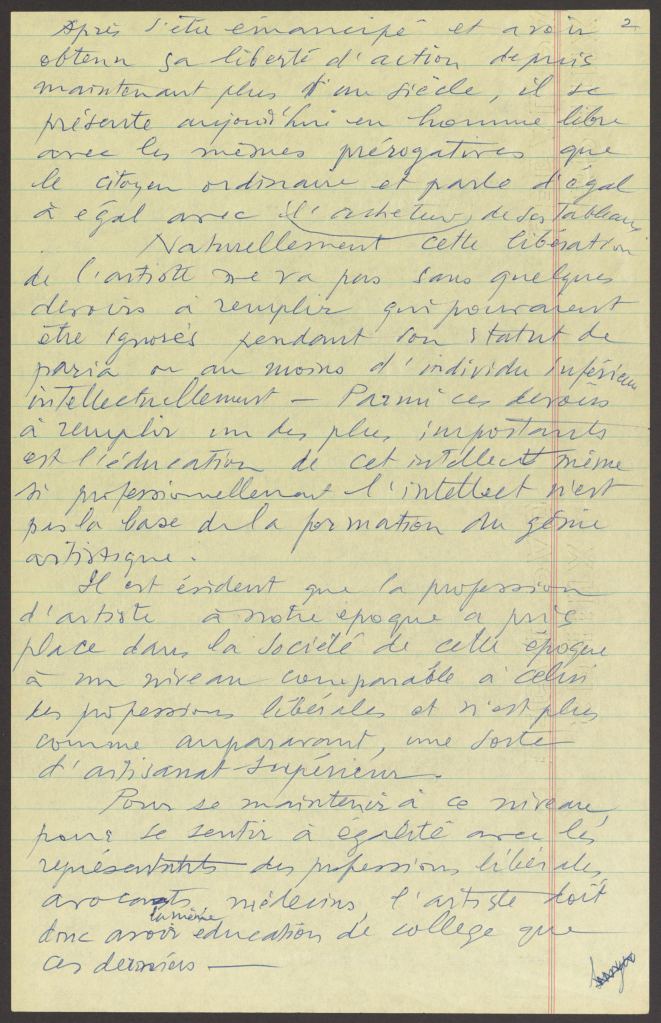 2
Après s'être émancipé et avoir
obtenu sa liberté d'action depuis
maintenant plus d'un siècle, il se
présente aujourd'hui en homme libre
avec les mêmes prérogatives que
le citoyen ordinaire et parle d'égal
à égal avec l'acheteur de ses tableaux.
Naturellement cette libération
de l'artiste ne va pas sans quelques
devoirs à remplir qui pouvaient
être ignorés pendant son statut de
paria ou au moins d'individu inférieur
intellectuellement — Parmi ces devoirs
à remplir un des plus importants
est l'éducation de cet intellect même
si professionnellement l'intellect n'est
pas la base de la formation du génie
artistique.
Il est évident que la profession
d'artiste à notre époque a pris
place dans la société de cette époque
à un niveau comparable à celui
des professions libérales et n'est plus
comme auparavant, une sorte
d'artisanat supérieur.
Pour se maintenir à ce niveau,
pour se sentir à égalité avec les
représentants des professions libérales,
avocats, médecins, l'artiste doit
donc avoir la même éducation de collège que
ces derniers —